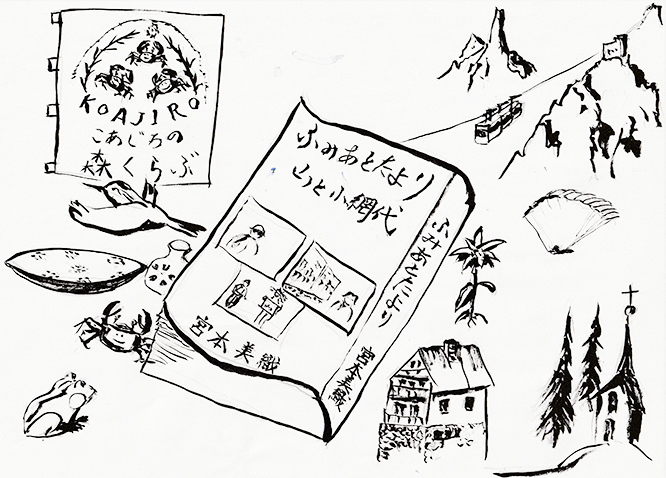 KOAJIRO
こあじろの
森くらぶ
ふみあとたより
山と小網代
宮本美織
ふみあとたより
宮本美織